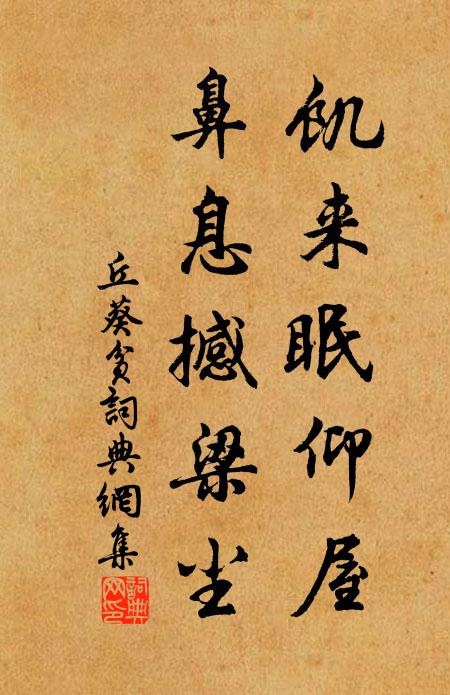 飢来眠仰屋
鼻息撼梁尘
丘葵贫詞典網集
詞典网印